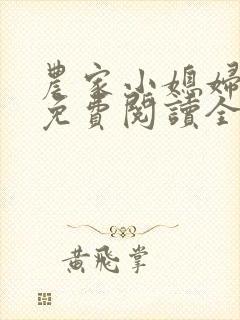 農家小媳婦
免費閱讀全
黃飛掌